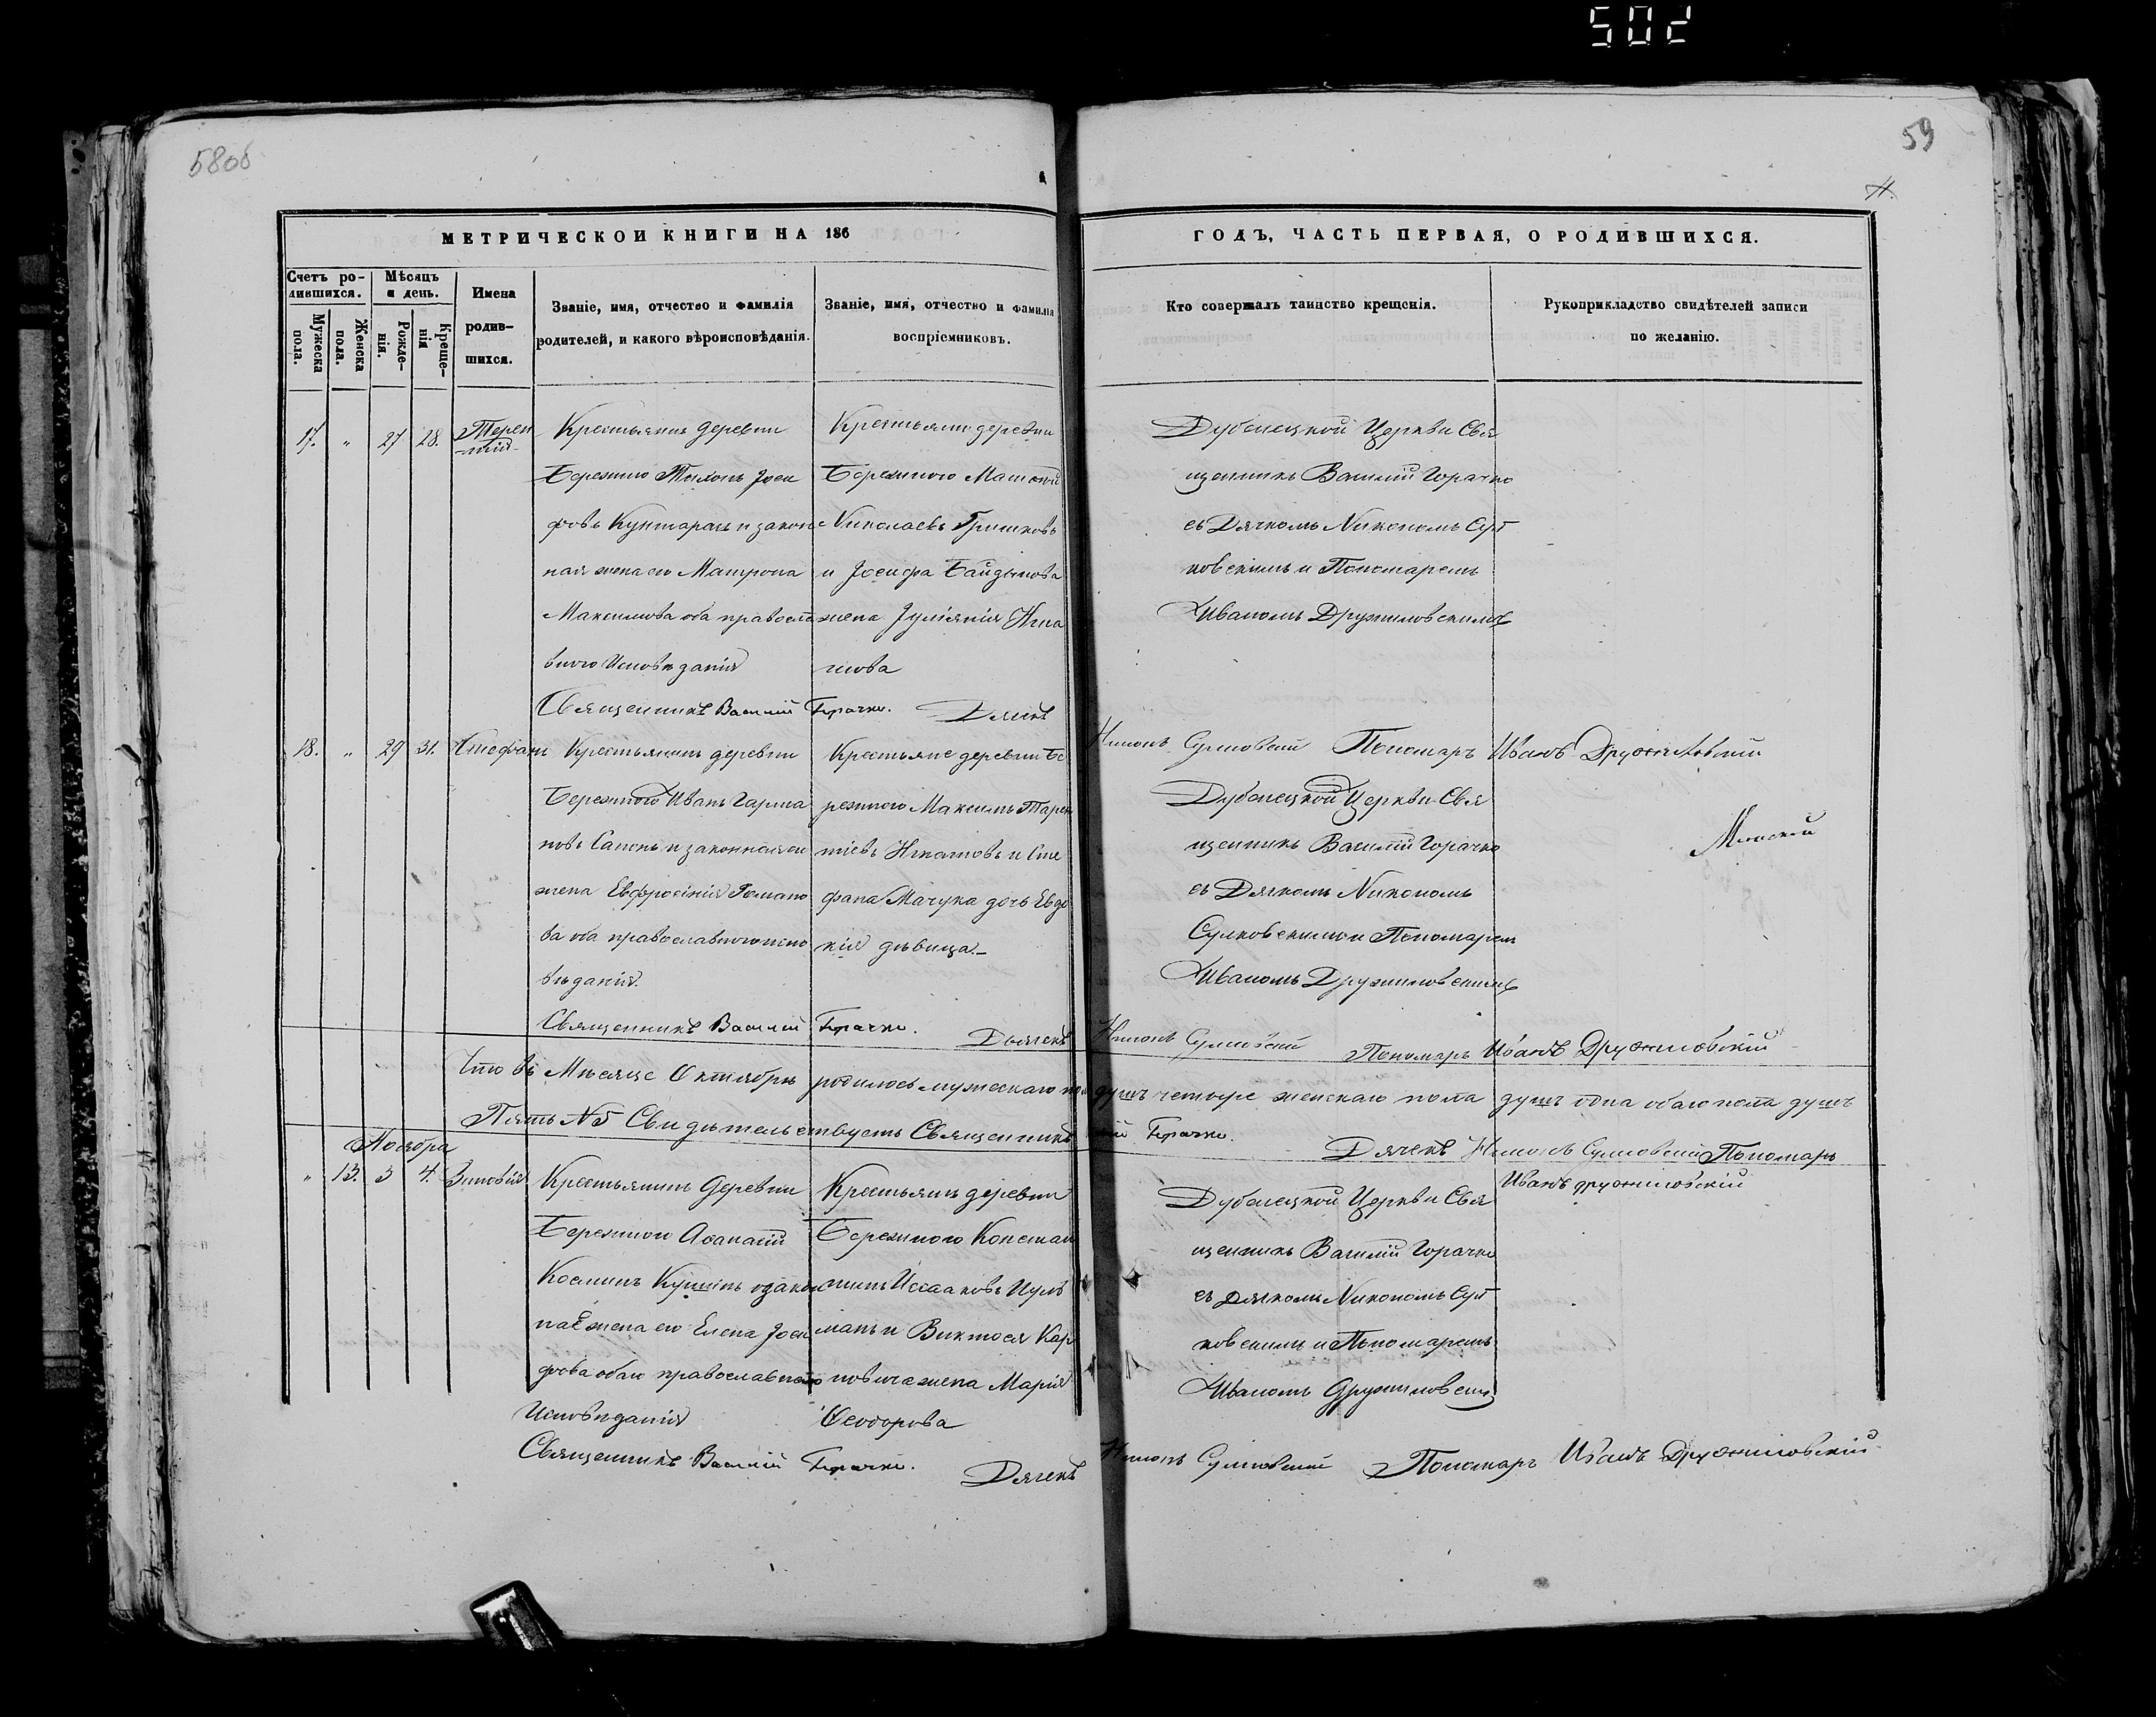 502
58об
59
МЕТРИЧЕСКОЙ КНИГИ НА 186
ГОДЪ, ЧАСТЬ ПЕРВАЯ, О РОДИВШИХСЯ.
Счетъ ро-
дившихся.
Мужеска пола.
Женска пола.
Мѣсяцъ и день.
Рожде-нія.
Креще-нія
Имена
родив-
шихся.
Званіе, имя, отчество и фамилія
родителей, и какого вѣроисповѣданія.
Званіе, имя, отчество и фамилія
воспріемниковъ.
Кто совершалъ таинство крещенія.
Рукоприкладство свидѣтелей записи
по желанію.
17. " 27 28. Терен
тій
Крестьянинъ деревни
Бережно Тихонъ Іоси
фовъ Кунтарахъ и закон
ная жена его Матрона
Максимова оба правосла
внаго Исповѣданія
Крестьянинъ деревни
Бережного
Николаевъ Гришковъ
и Іосифа
жена Іуліанія Игна
това
Дубенецкой Церкви Свя
щенникъ Василій Горачко
съ Дячкомъ Никономъ Сул
ковскимъ и Пономаремъ
Иваномъ Дружиловскимъ
Священникъ Василій Горачко. Дячекъ Никонъ Сулковскій Пономарь Иванъ Дружиловскій
18. " 29 31. Стефанъ
Крестьянинъ деревни
Бережного Иванъ
и законная его
жена Евфросинія Романо
ва оба православного испо
вѣданія.
Крестьяне деревни Бе
режного Максимъ Терен
тіевъ Игнатовъ и Сте
фана Мачука дочь Евдо
кія дѣвица.
Дубенецкой Церкви Свя
щенникъ Василій Горачко
съ Дячкомъ Никономъ
Сулковскимъ и Пономарем
Иваномъ Дружиловскимъ
Минской
Священникъ Василій Горачко. Дьячекъ Никонъ Сулковскій Пономарь Иванъ Дружиловскій
Что въ Мѣсяце Октябрѣ родилось мужескаго пола душъ четыре женскаго пола душъ одна обаго пола душъ
Пять №5 Свидѣтельствуетъ Священникъ Горачко. Дячекъ Никонъ Сулковскій Пономарь
Иванъ Дружиловскій
Ноября
" 13. 3 4. Зиновія
Крестьянинъ Деревни
Бережного Аѳанасій
Козминъ и закон
ная жена его Елена Іоси
фова обаго православного
Исповѣданія
Крестьянинъ деревни
Бережного Констан
тинъ Иссааковъ Цуль
манъ и Виктося Кар
повича жена Марія
Ѳеодорова
Дубенецкой Церкви Свя
щенникъ Василій Горачко
съ Дячкомъ Никономъ Сул
ковскимъ и Пономаремъ
Иваномъ Дружиловским
Священникъ Василій Горачко. Дячекъ Никонъ Сулковскій Пономарь Иванъ Дружиловскій